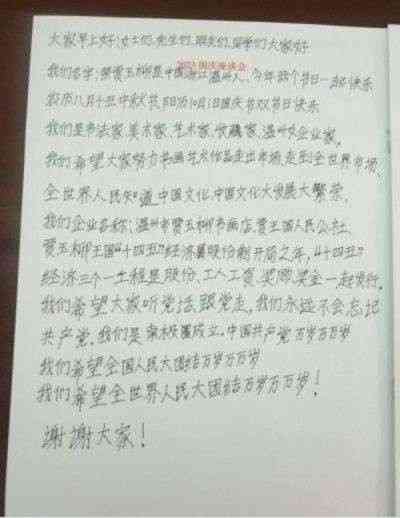 大家早上好!女士们、先生们、朋友们、同学们大家好
2023国庆座谈会
我们名字:贾玉柳是中国浙江温州人、今年两个节日一起快乐
农历八月十五中秋节、阳历10月1日国庆节双节日快乐
我们是书法家、美术家、艺术家、收藏家、温州女企业家。
我们希望大家努力书画艺术作品走出市场、走到全世界市场、
全世界人民知道中国文化、中国文化大发展大繁荣、
我们企业名称:温州市贾玉柳书画店、贾王国人民公社、
贾玉柳王国"十四五"经济 股份制开局之年,"十四五"
经济三个一工程是股份、工人工资、奖励奖金一起发行。
我们希望大家听党话跟党走,我们永远不会忘记
共产党。我们是 积 成立、中国共产党万岁万万岁
我们希望全国人民大团结万岁万万岁
我们希望全世界人民大团结万岁万万岁!
谢谢大家!